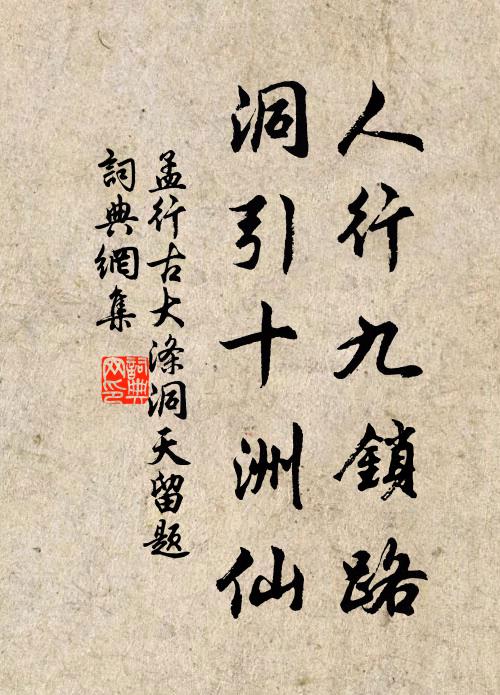 人行九鎖路
洞引十洲仙
孟行古大滌洞天留題
詞典網集
詞典网印